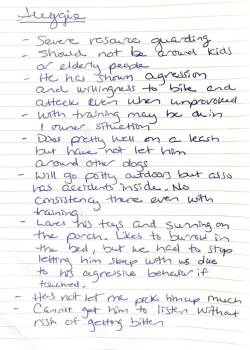 Meggie
- Severe resource guarding
- Should not be around kids
or elderly people
- He has shown agression
and willingness to bite and
attack even when unprovoked
- With training may be ok in
1 owner situation
- Does pretty well on a leash
but have not let him
around other dogs
- Will go potty outdoors but also
has accidents inside. No
consistency there even with
training.
- Loves his toys and sunning on
the porch. Likes to burrow in
the bed, but we had to stop
letting him sleep with us due
to his aggressive behavior if
touched.
- He's not let me pick him up much
- Cannot get him to listen without
risk of getting bitten